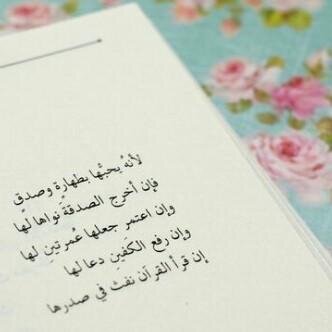 لأنهُ يحبُّها بطهارةٍ وصدق
فإن أخرج الصدقةَ نواها لها
وإن اعتمر جعلها عُمرتينِ لها
وإن رفع الكَفينِ دعا لها
إن قرأ القرآن نفثَ في صدرها